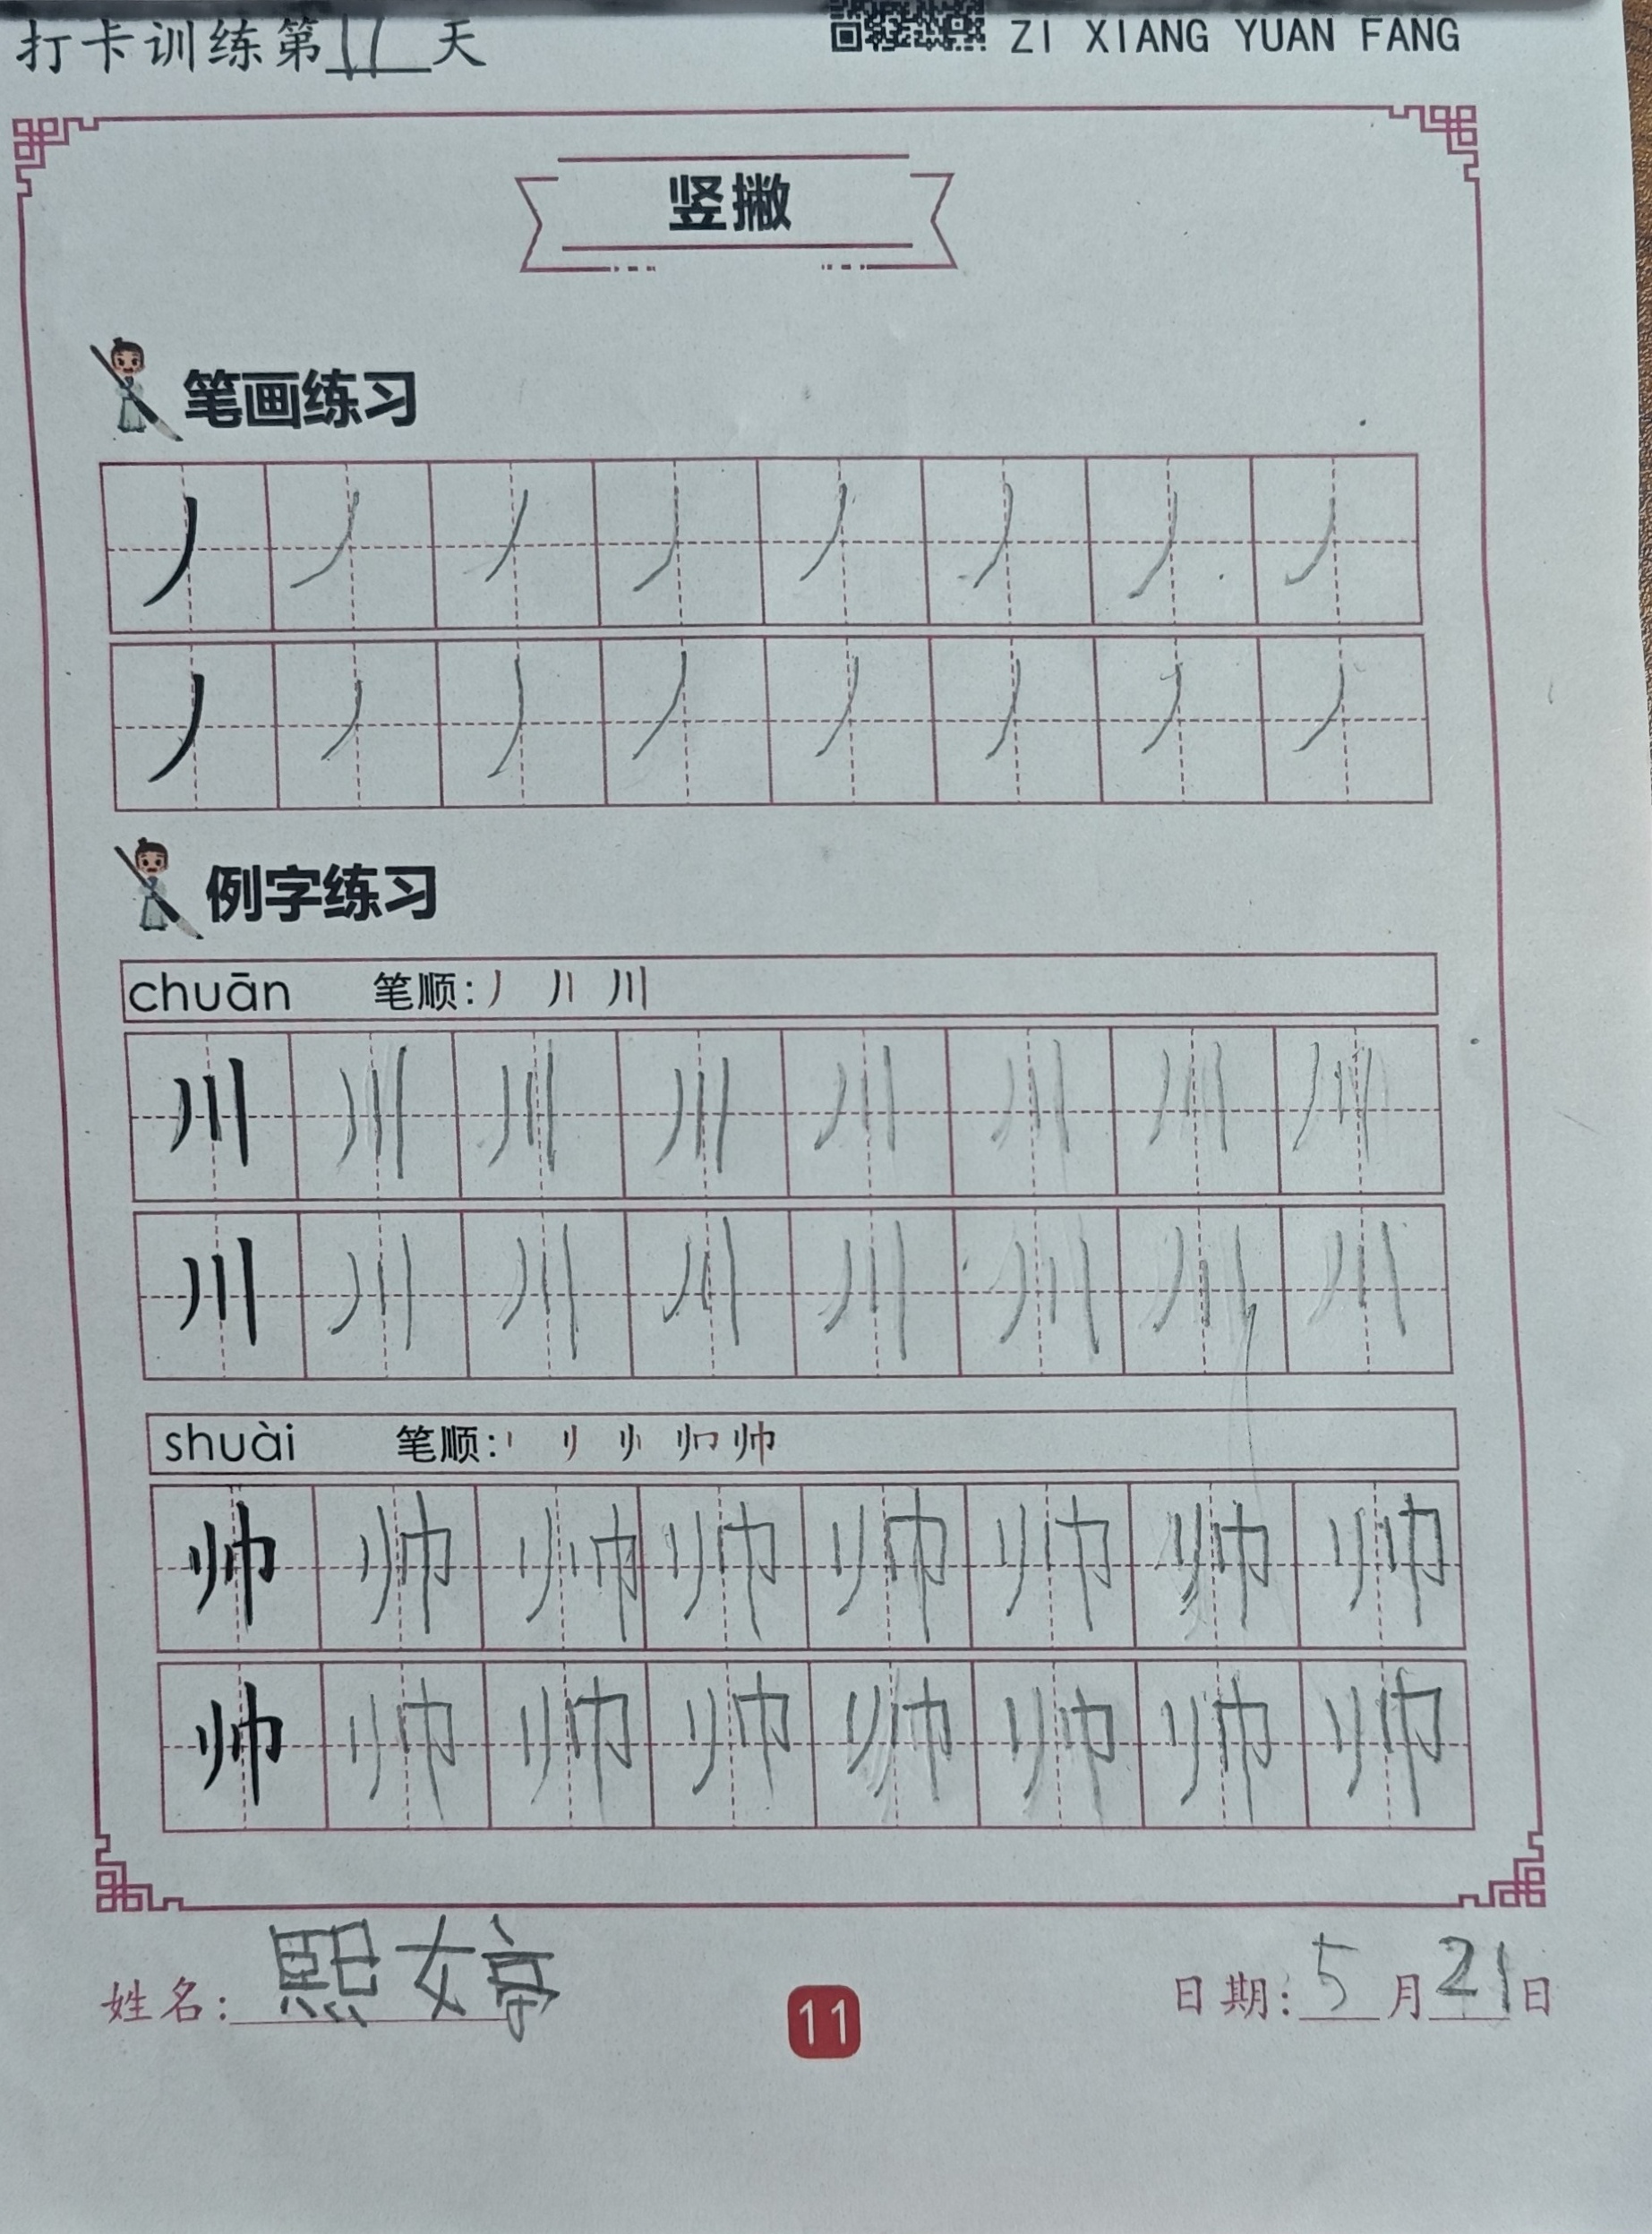 打卡训练第11天
ZI XIANG YUAN FANG
竖撇
笔画练习
丿 丿 丿 丿 丿 丿 丿 丿
丿 丿 丿 丿 丿 丿 丿 丿
例字练习
chuān 笔顺: 丿 丿丨 川
川 川 川 川 川 川 川 川
川 川 川 川 川 川 川 川
shuài 笔顺: 帅
帅 帅 帅 帅 帅 帅 帅 帅
帅 帅 帅 帅 帅 帅 帅 帅
姓名: 熙婷
11
日期: 5月21日